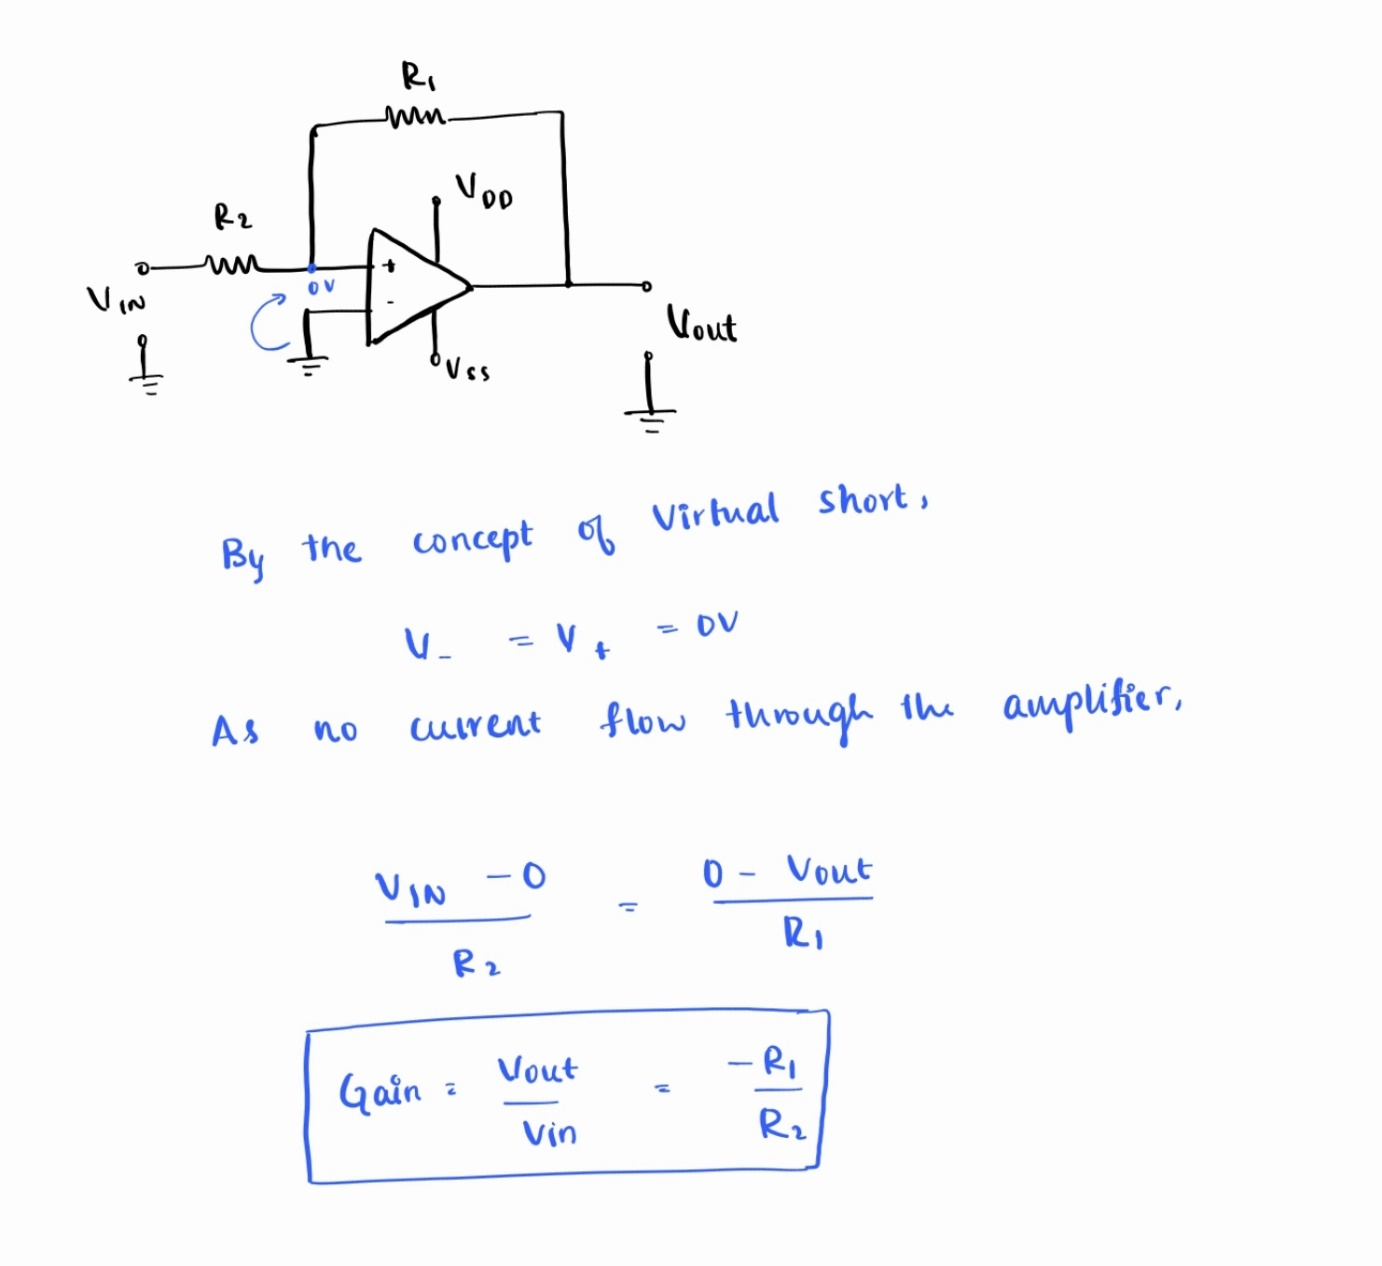 R1
VDD
R2
+
0V
VIN
-
Vout
Vss
By the concept of Virtual short,
V- = V+ = 0V
As no current flow through the amplifier,
VIN - 0 / R2 = 0 - Vout / R1
Gain = Vout / Vin = -R1 / R2